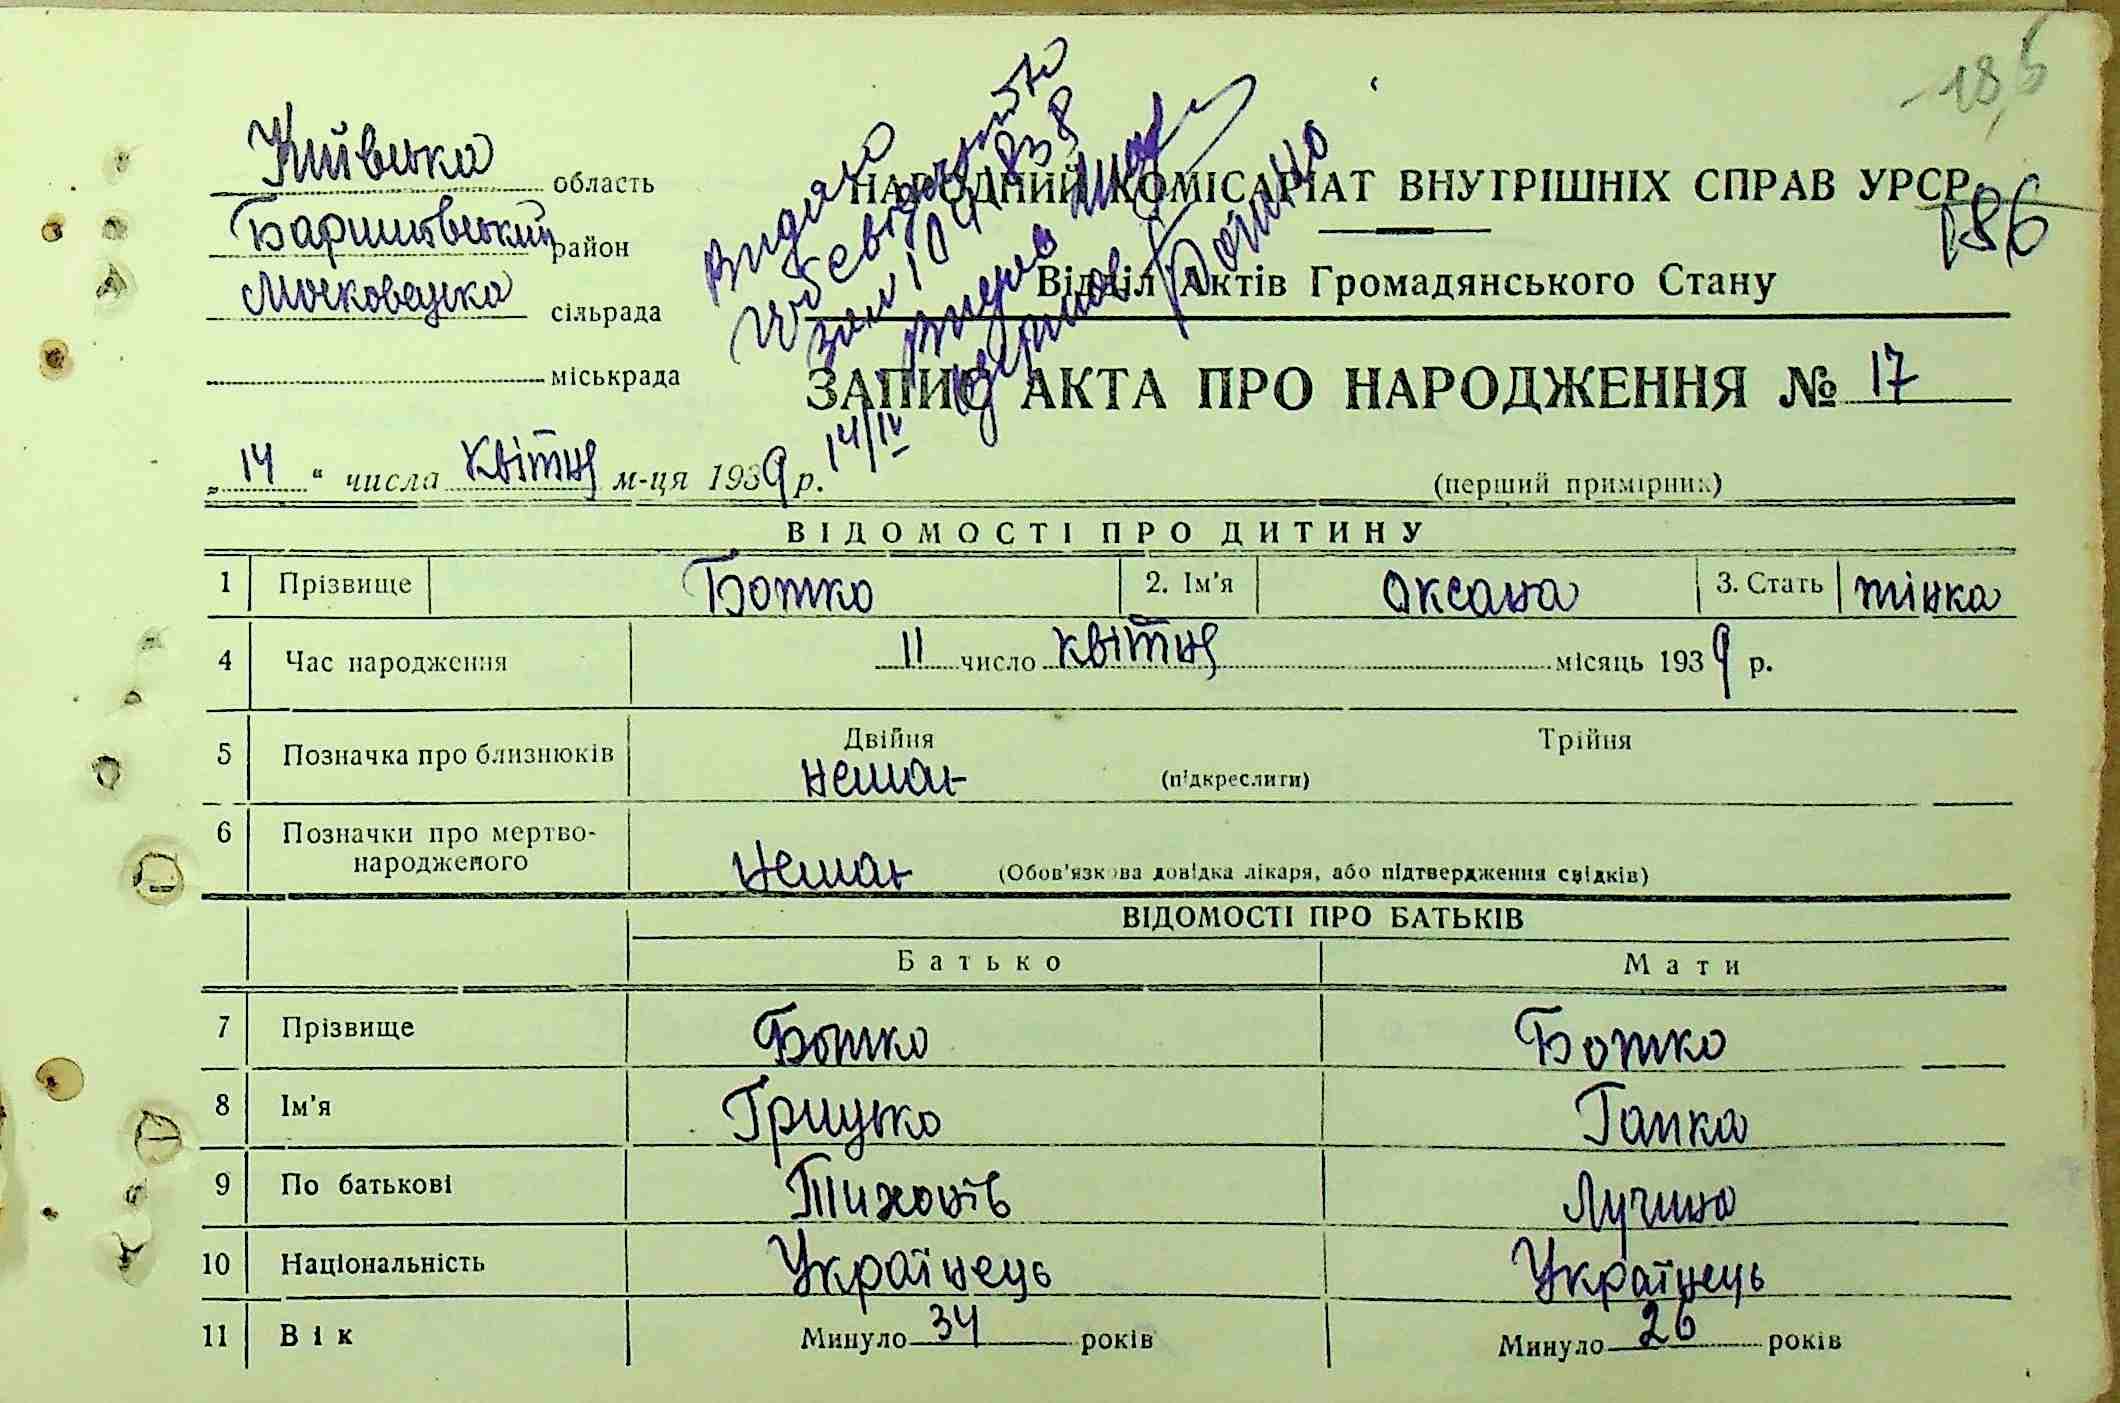 18,5
Київська область
НАРОДНИЙ КОМІСАРІАТ ВНУТРІШНІХ СПРАВ УРСР
186
Баришівський район
Відділ Актів Громадянського Стану
Московецка сільрада
міськрада
ЗАПИС АКТА ПРО НАРОДЖЕННЯ № 17
Видано
14/IV
„ 14 “ числа квітня м-ця 1939 р.
(перший примірник)
ВІДОМОСТІ ПРО ДИТИНУ
1 Прізвище Божко 2. Ім'я Оксана 3. Стать жінка
4 Час народження 11 число квітня місяць 1939 р.
5 Позначка про близнюків Двійня Трійня
немає (підкреслити)
6 Позначки про мертво-
народженого немає (Обов'язкова довідка лікаря, або підтвердження свідків)
ВІДОМОСТІ ПРО БАТЬКІВ
Батько Мати
7 Прізвище Божко Божко
8 Ім'я Грицько Гапка
9 По батькові Тихонів Лучина
10 Національність Українець Українець
11 Вік Минуло 34 років Минуло 26 років